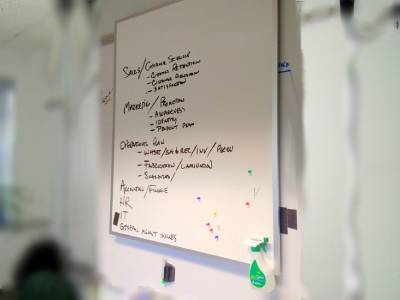 Sales/Customer Service
- Customer Retention
- Customer Acquisition
- Satisfaction
Marketing/Promotion
- Awareness
- Identity
- Product Plan
Operations Plan
- Fabrication/Lamination
Accounting/Finance
HR
IT
General Mgmt Issues